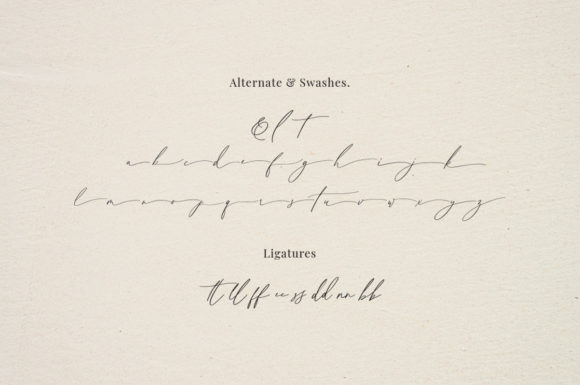 Alternate & Swashes.
Q l T
a b c d e f g h i j k
l m n o p q r s t u v w x y z
Ligatures
tt ll ff ee ss dd nn bb